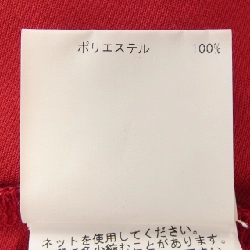 ポリエステル 100%
ネットを使用してください。
多少縮むことがあります。